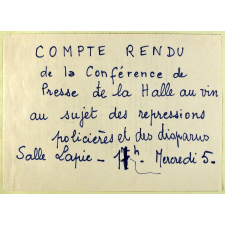 COMPTE RENDU
de la Conférence de
Presse de la Halle au vin
au sujet des repressions
policières et des disparus
Salle Lapie - h. Mercredi 5.